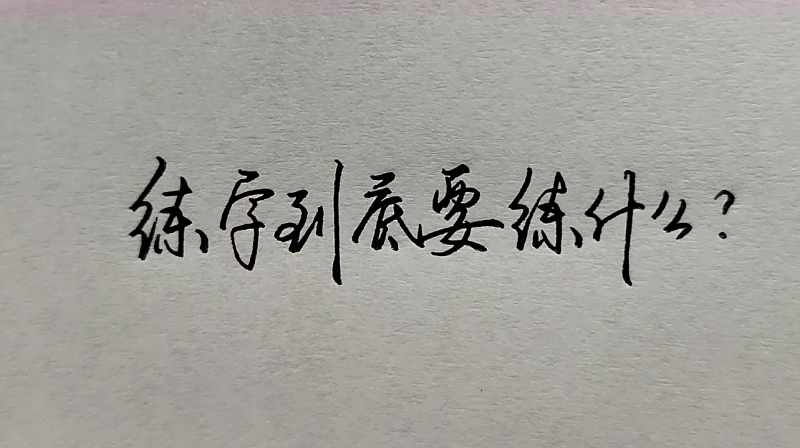 练字到底要练什么?